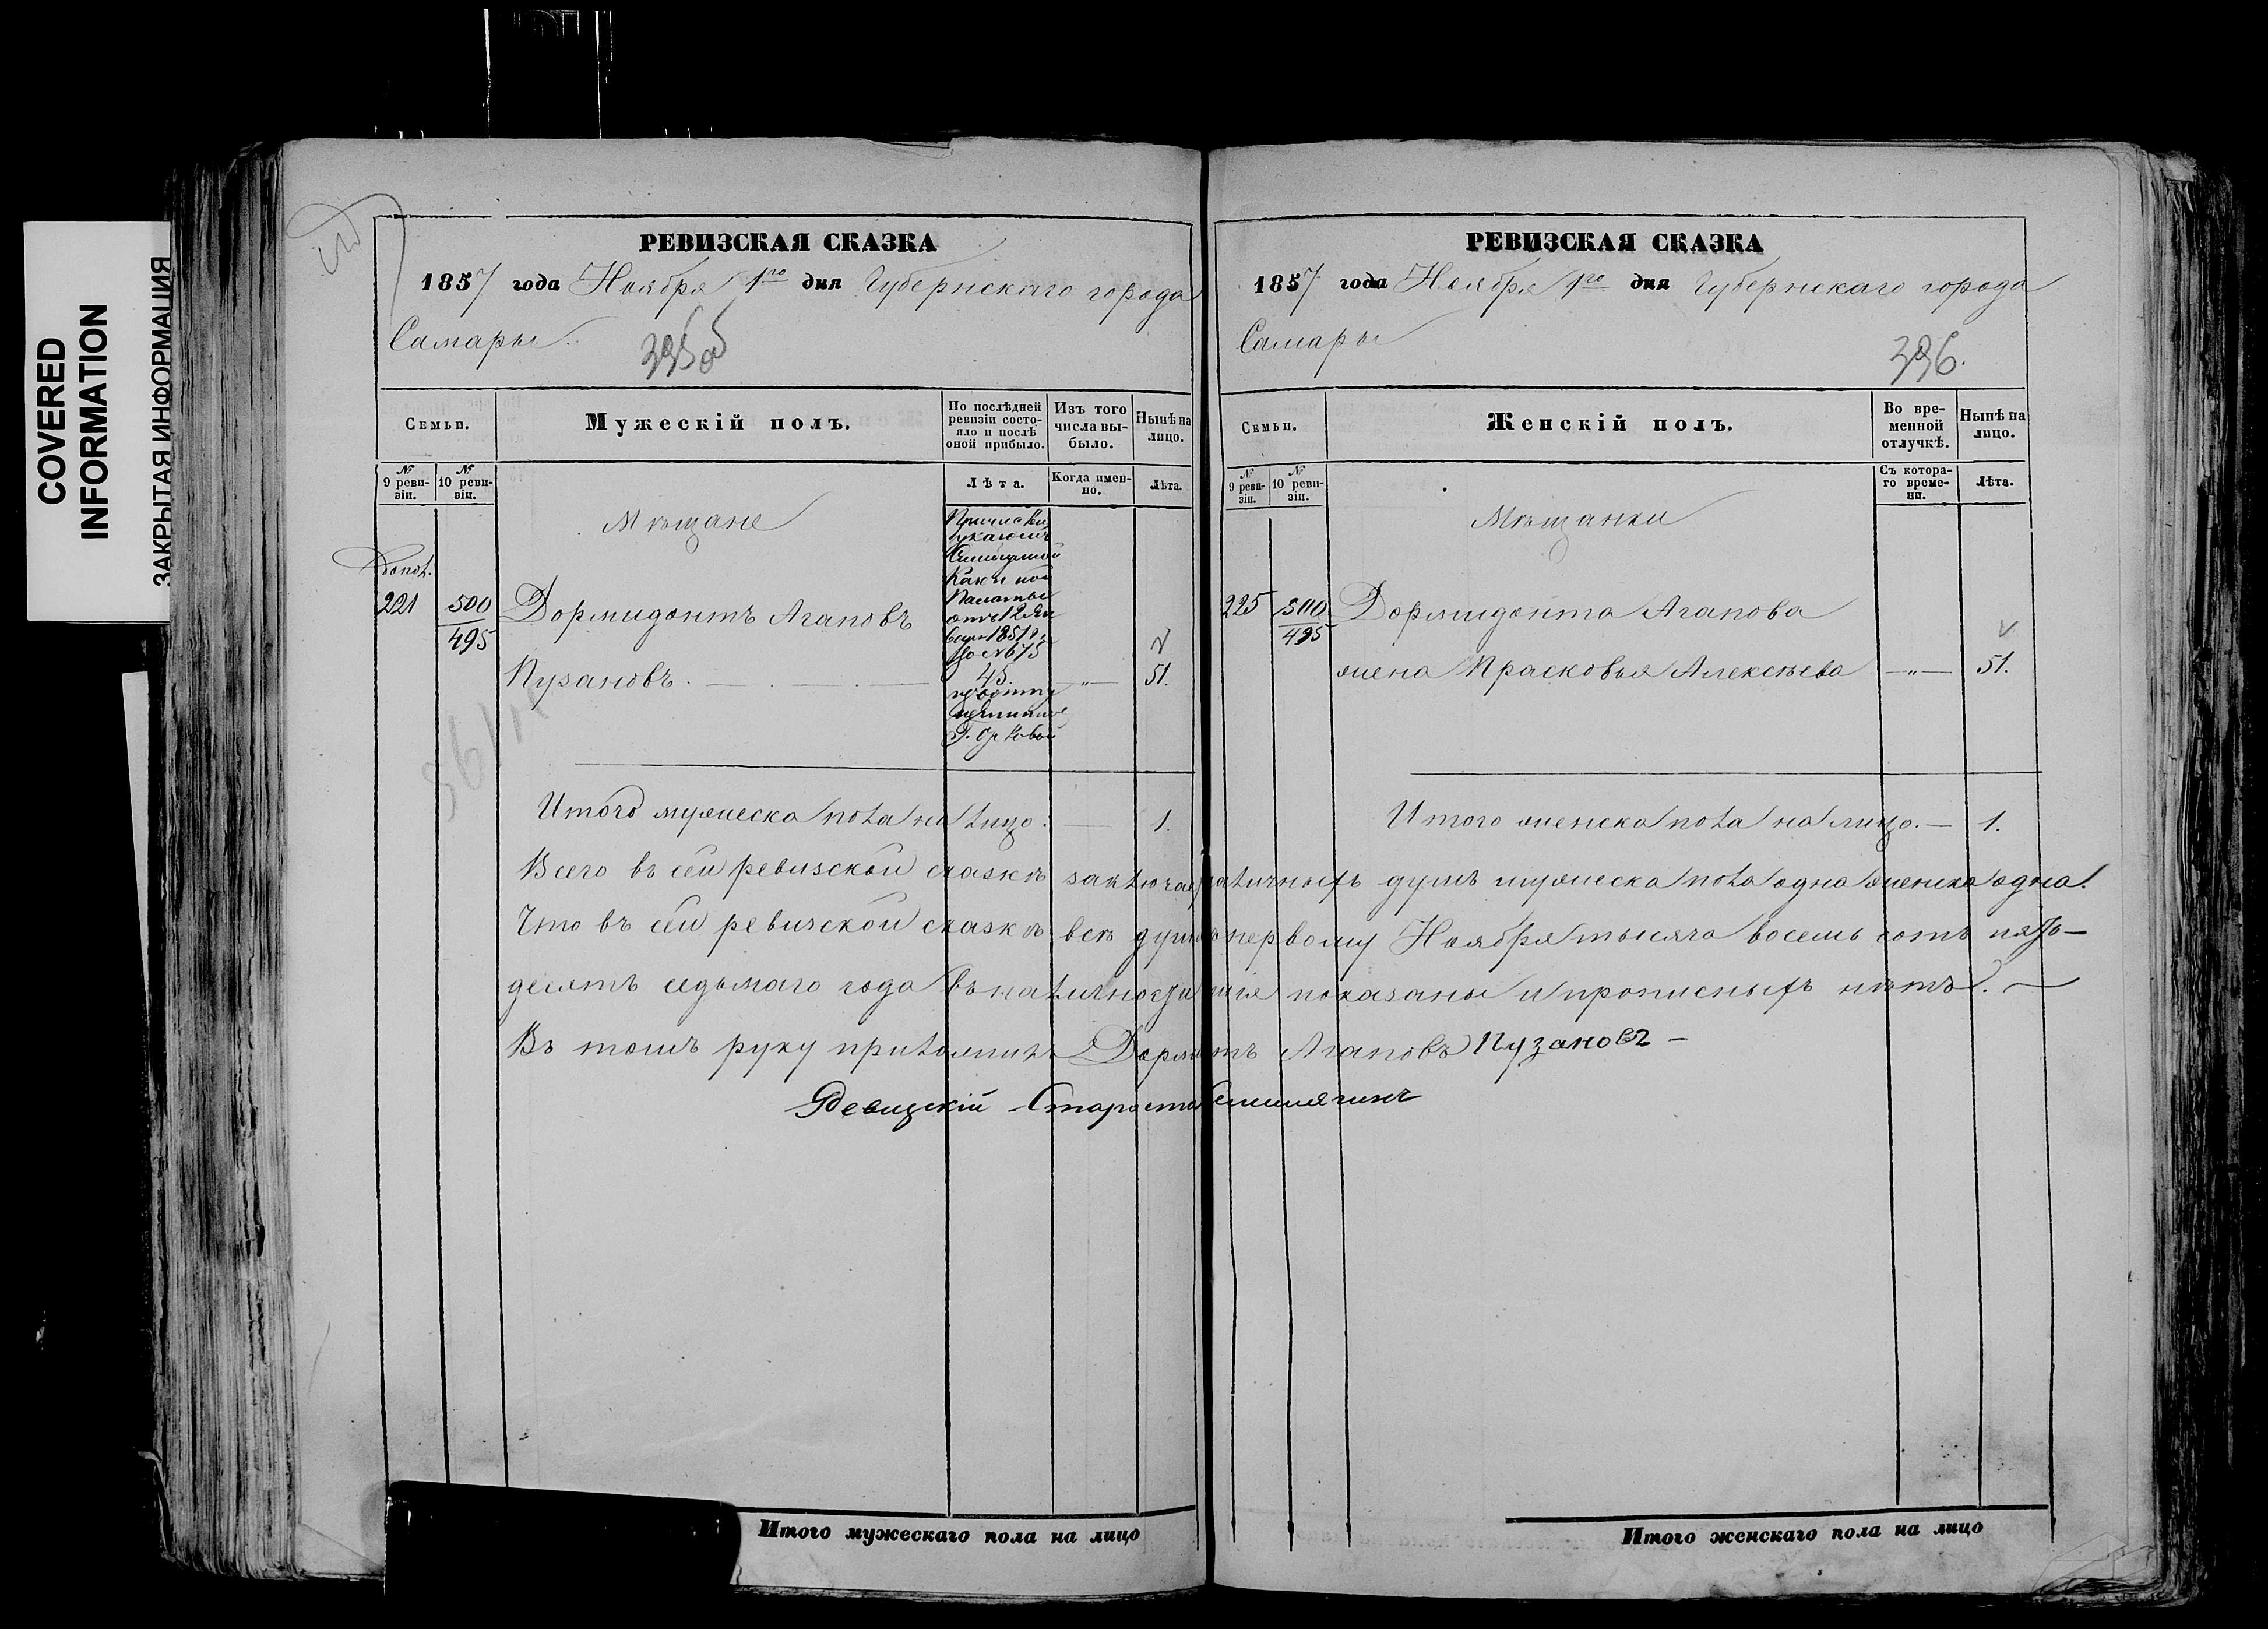 COVERED
INFORMATION
ЗАКРЫТАЯ ИНФОРМАЦИЯ
РЕВИЗСКАЯ СКАЗКА
1857 года Ноября 1го дня Губернскаго города
Самары
395 об
Семьи.
Мужескій полъ.
По послѣдней ревизіи состо-
яло и послѣ
оной прибыло.
Изъ того
числа вы-
было.
Нынѣ на
лицо.
№ 9 реви-
зіи.
№ 10 реви-
зіи.
Лѣта.
Когда имен-
но.
Лѣта.
Мѣщане
Причислен
указомъ
Казен ной
Палаты
отъ 12 Ян
1851 г.
за №675
Допол.
221 500 Дормидонтъ Агаповъ
495
Пузановъ. 45. — „ — 51.
Итого мужеска пола на лицо. — 1.
РЕВИЗСКАЯ СКАЗКА
1857 года Ноября 1го дня Губернскаго города
Самары
396.
Семьи.
Женскій полъ.
Во вре-
менной
отлучкѣ.
Нынѣ на
лицо.
№ 9 реви-
зіи.
№ 10 реви-
зіи.
Съ котора-
го време-
ни.
Лѣта.
Мѣщанки
225 500 Дормидонта Агапова
495
жена Прасковья Алексѣева — „ — 51.
Итого женска пола на лицо. — 1.
Всего въ сей ревизской сказкѣ заключае наличныхъ душъ мужеска пола одна женска одна.
Что въ сей ревизской сказкѣ всѣ души к первому Ноября тысяча восемь сотъ пять-
десятъ седьмаго года въ наличности показаны и прописныхъ нѣтъ. —
Въ томъ руку приложилъ Агаповъ Пузановъ —
Ревизскій Староста
Итого мужескаго пола на лицо
Итого женскаго пола на лицо